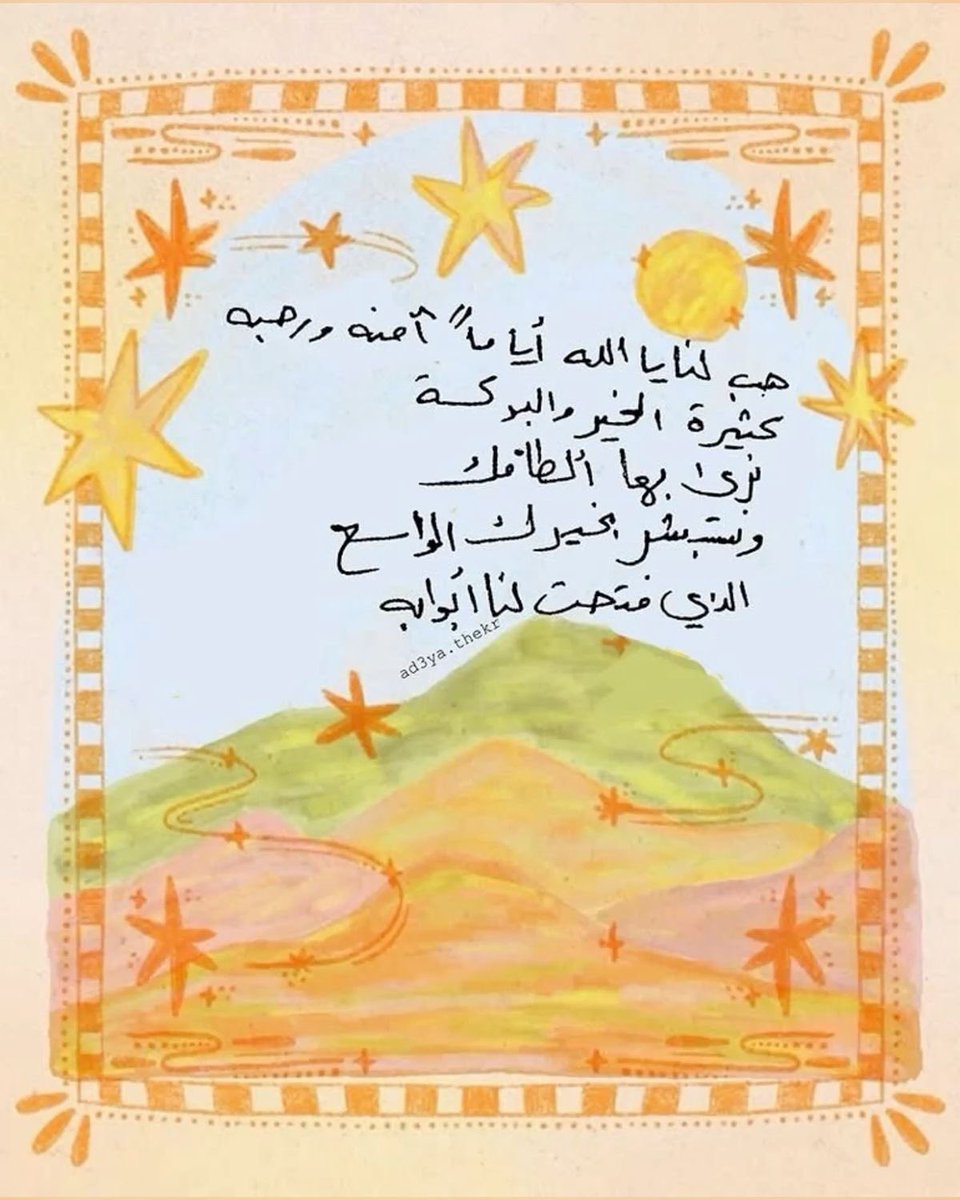 هب لنا يا الله أياماً آمنه ورحبه
كثيرة الخير والبركة
نرى بها ألطافك
ونستبشر بخيرك الواسع
الذي فتحت لنا أبوابه
ad3ya.thekr